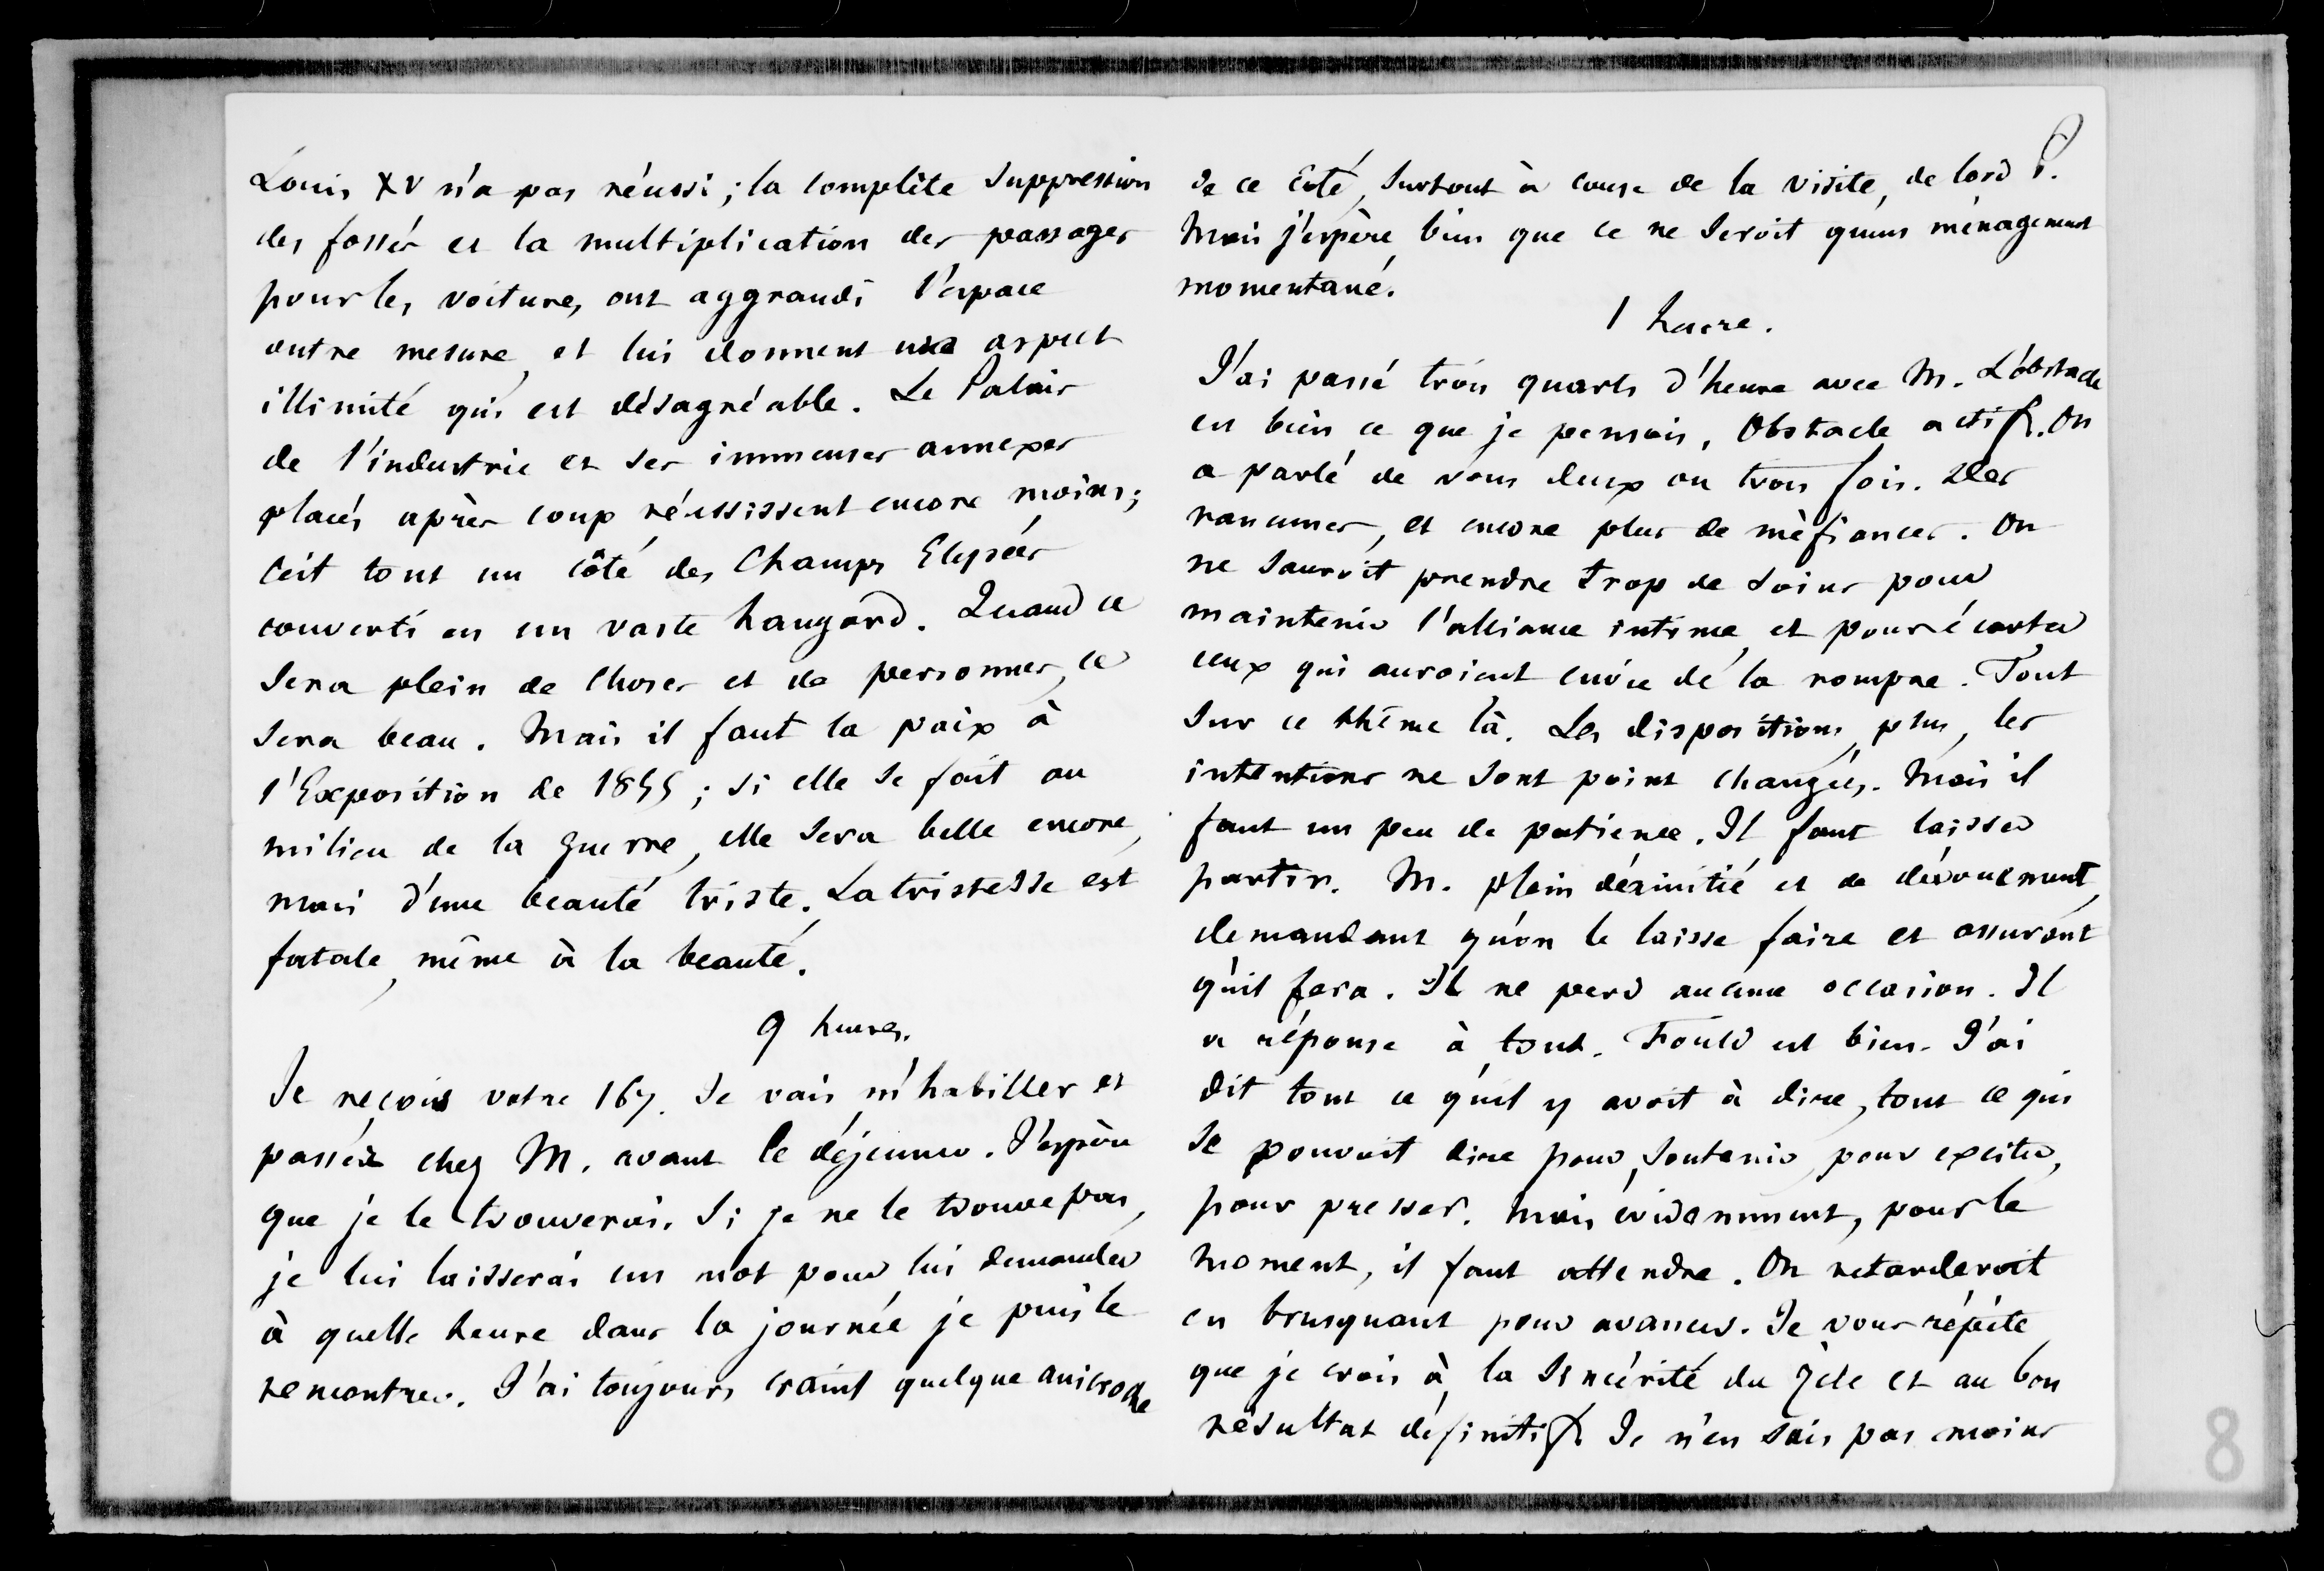 Louis XV n'a pas réussi ; la complète suppression
des fossés et la multiplication des passages
pour les voitures, ont aggrandi l'espace
outre mesure, et lui donnent un aspect
illimité qui est désagréable. Le Palais
de l'industrie et ses immenses annexes
placés après coup réussissent encore moins ;
c'est tout un côté des Champs Elysées
converti en un vaste hangard. Quand ce
sera plein de choses et de personnes, ce
sera beau. Mais il faut la paix à
l'Exposition de 1855 ; si elle se fait au
milieu de la guerre, elle sera belle encore,
mais d'une beauté triste. La tristesse est
fatale, même à la beauté.
9 heures.
Je reçois votre 167. Je vais m'habiller et
passer chez M. avant le déjeuner. J'espère
que je le trouverai. Si je ne le trouve pas,
je lui laisserai un mot pour lui demander
à quelle heure dans la journée je puis le
rencontrer. J'ai toujours craint quelque anicroche
de ce côté, surtout à cause de la visite, de lord P.
Mais j'espère bien que ce ne seroit qu'un ménagement
momentané.
1 heure.
J'ai passé trois quarts d'heure avec M. L'obstacle
est bien ce que je pensois, Obstacle actif. On
a parlé de vous deux ou trois fois. Des
rancunes, et encore plus de méfiances. On
ne sauroit prendre trop de soins pour
maintenir l'alliance intime, et pour écarter
ceux qui auroient envie de la rompre. Tout
sur ce thème là. Les dispositions, plus, les
intentions ne sont point changées. Mais il
faut un peu de patience. Il faut laisser
partir. M. plein d'amitié et de dévouement,
demandant qu'on le laisse faire et assurant
qu'il fera. Il ne perd aucune occasion. Il
a réponse à tout. Fould est bien. J'ai
dit tout ce qu'il y avoit à dire, tout ce qui
se pouvoit dire pour soutenir, pour exciter,
pour presser. Mais évidemment, pour le
moment, il faut attendre. On retarderoit
en brusquant pour avancer. Je vous répète
que je crois à la sincérité du zèle et au bon
résultat définitif. Je n'en suis pas moins
8